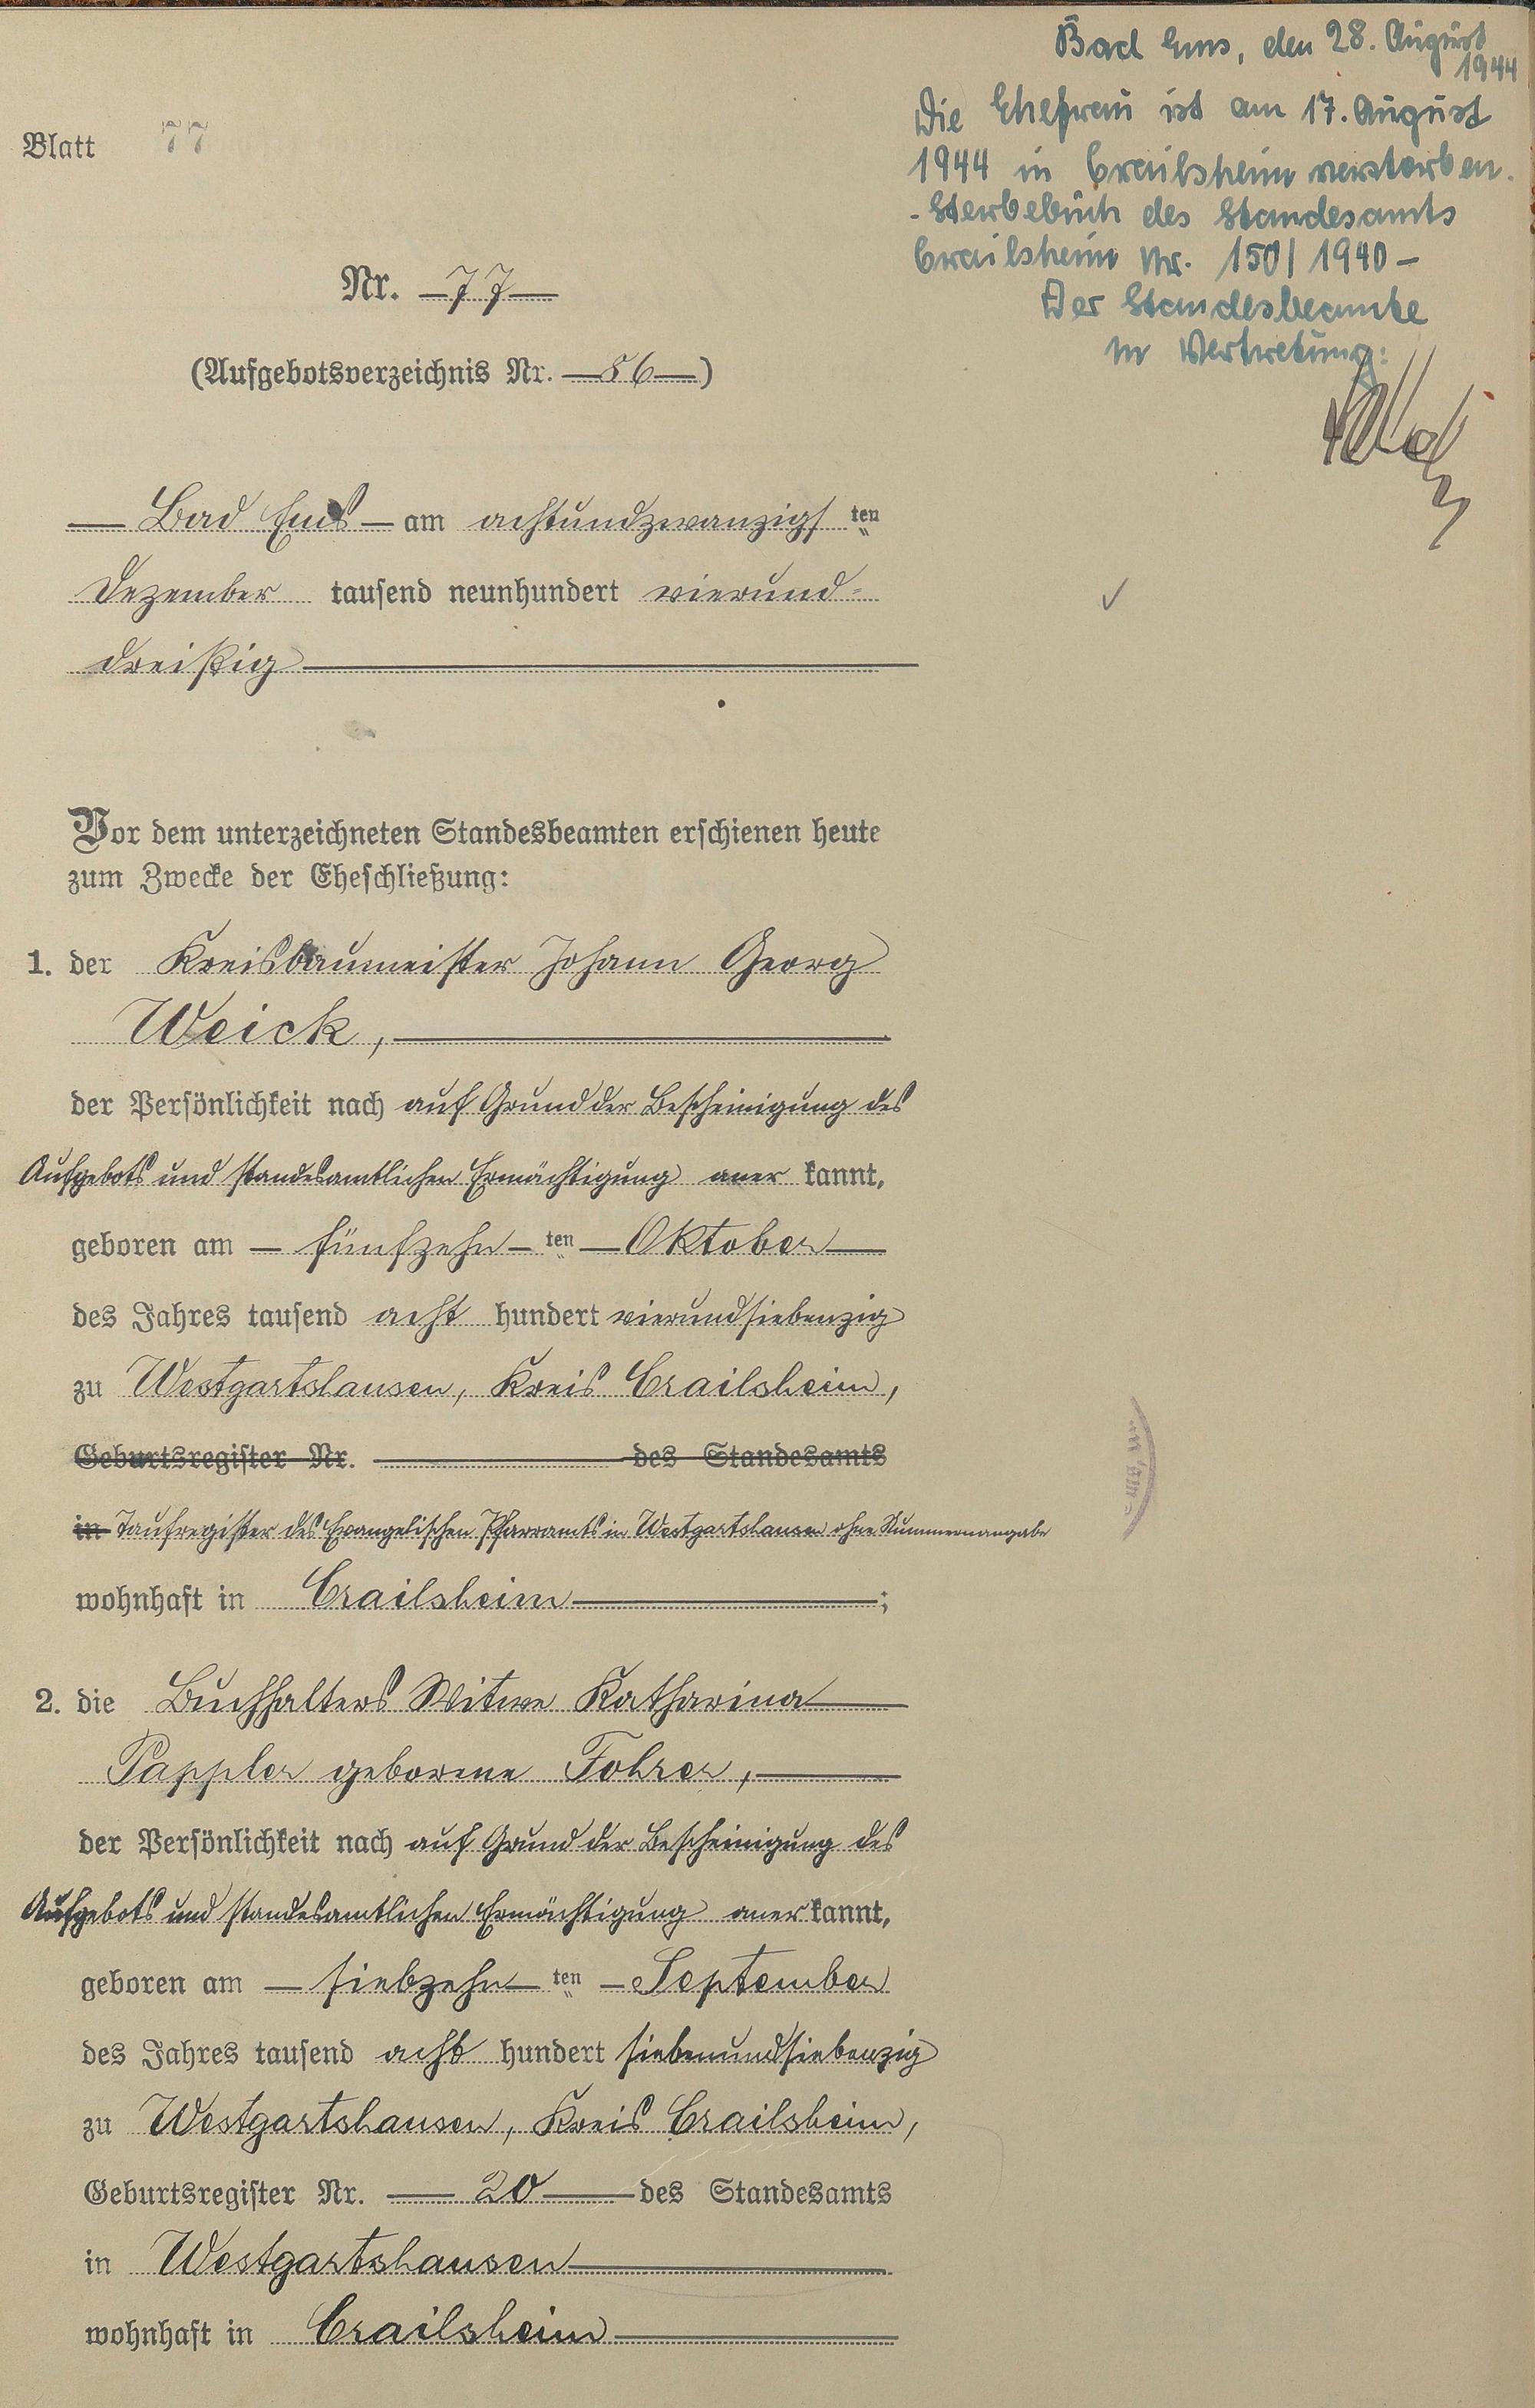 Bad Ems, den 28. August
1944
Die Ehefrau ist am 17. August
1944 in Crailsheim verstorben.
- Sterbebuch des Standesamts
Crailsheim Nr. 150/1940 -
Der Standesbeamte
in Vertretung:
Blatt 77
Nr. 77
(Aufgebotsverzeichnis Nr. 86)
Bad Ems am achtundzwanzigsten
Dezember tausend neunhundert vierund-
dreißig
Vor dem unterzeichneten Standesbeamten erschienen heute
zum Zwecke der Eheschließung:
1. der Kreisbaumeister Johann Georg
Weick,
der Persönlichkeit nach auf Grund der Bescheinigung des
Aufgebots und standesamtlichen Ermächtigung anerkannt,
geboren am fünfzehnten Oktober
des Jahres tausend acht hundert vierundsiebenzig
zu Westgartshausen, Kreis Crailsheim,
Geburtsregister Nr. des Standesamts
in Taufregister des Evangelischen Pfarramts in Westgartshausen ohne Nummernangabe
wohnhaft in Crailsheim ;
2. die Buchhalters Witwe Katharina
Pappler geborene Fohrer,
der Persönlichkeit nach auf Grund der Bescheinigung des
Aufgebots und standesamtlichen Ermächtigung anerkannt,
geboren am siebzehnten September
des Jahres tausend acht hundert siebenundsiebenzig
zu Westgartshausen, Kreis Crailsheim,
Geburtsregister Nr. 20 des Standesamts
in Westgartshausen
wohnhaft in Crailsheim